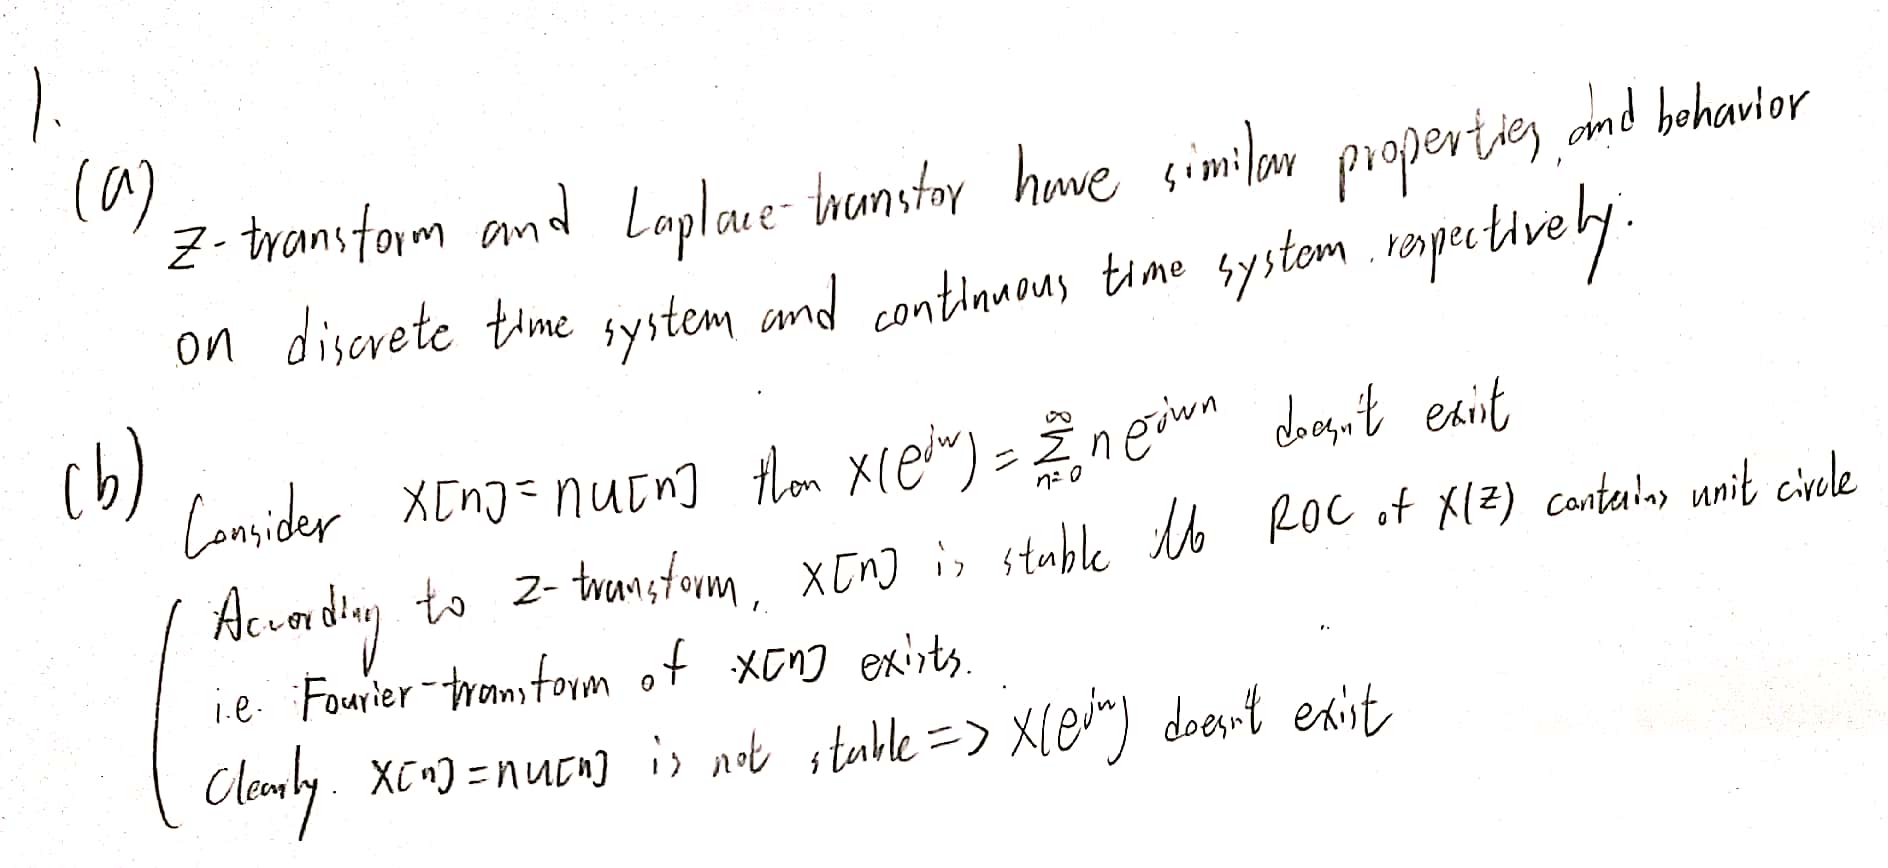 1.
(a)
Z-transform and Laplace-transfor have similar properties and behavior
on discrete time system and continuous time system, respectively.
(b)
Consider X[n]=nu[n] then X(e^{jw}) = \sum_{n=0}^{\infty} n e^{-jwn} doesn't exist
According to Z-transform, X[n] is stable iff ROC of X(Z) contains unit circle
i.e. Fourier-transform of X[n] exists.
Clearly. X[n]=nu[n] is not stable => X(e^{jw}) doesn't exist